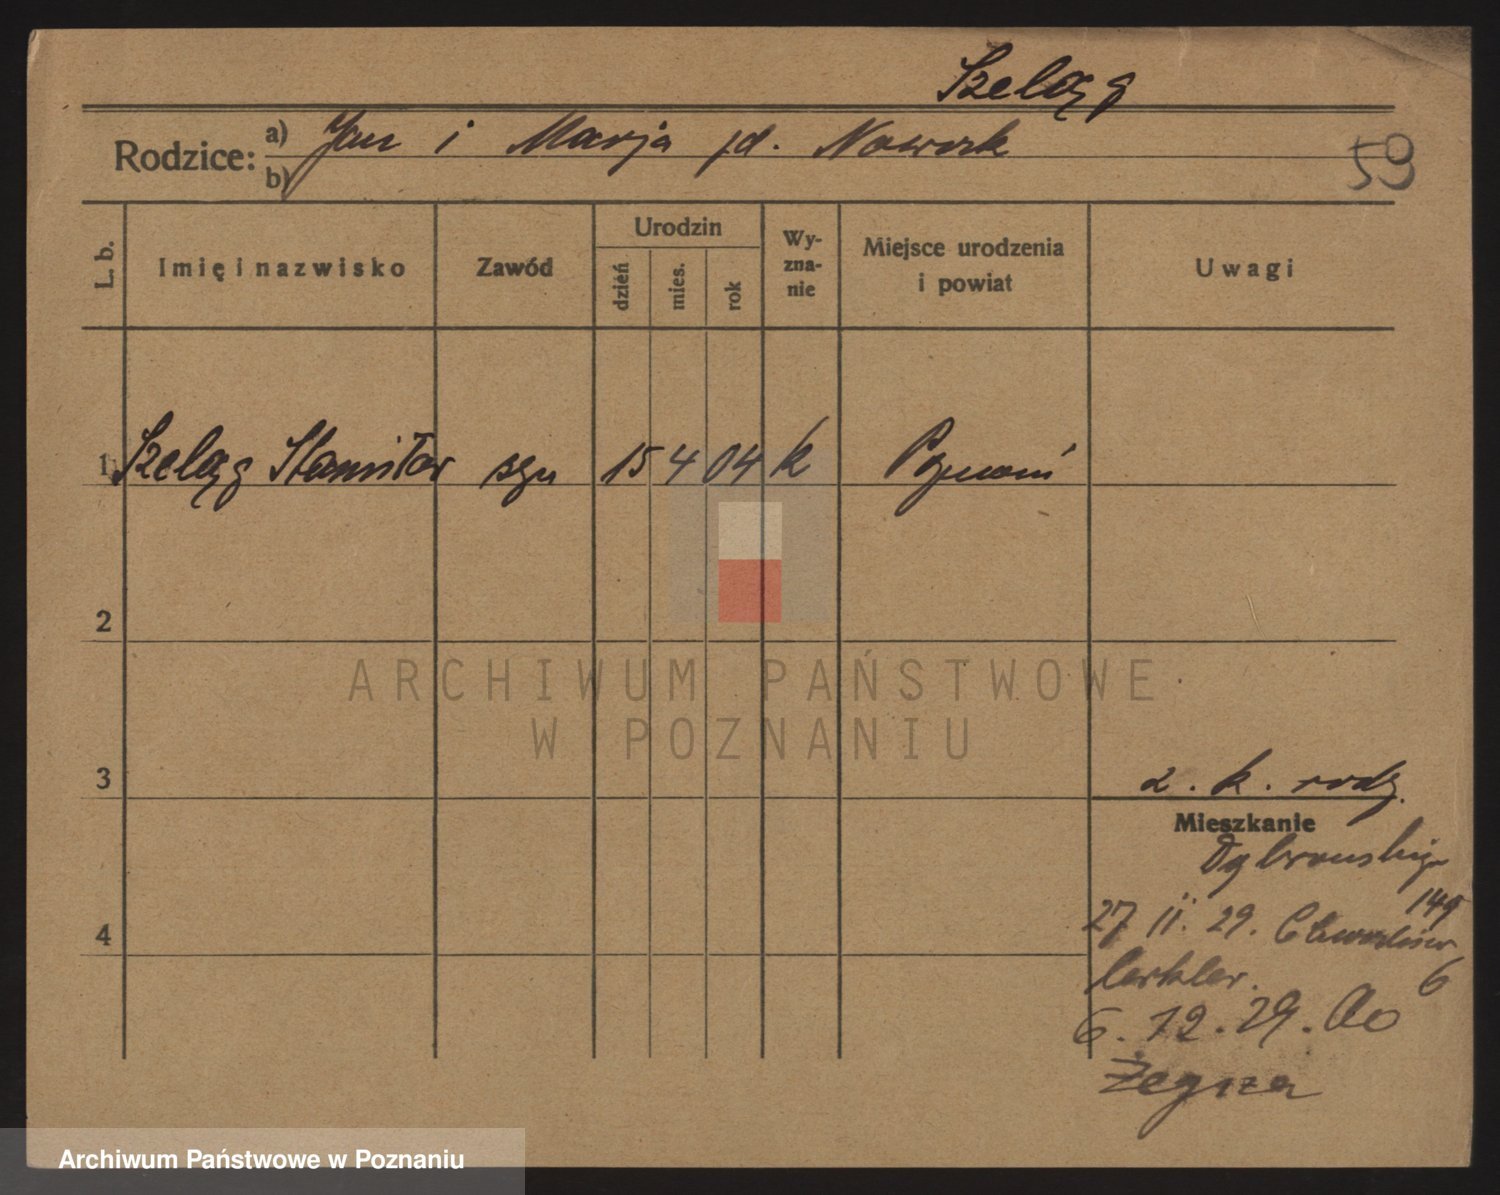 Szeląg
Rodzice: a) Jan i Marja zd. Nowak
b)
59
L. b.
Imię i nazwisko
Zawód
Urodzin
dzień
mies.
rok
Wy-
zna-
nie
Miejsce urodzenia
i powiat
Uwagi
1 Szeląg Stanisław syn 15 4 04 k Poznań
2
3
4
z. k. rodz.
Mieszkanie
Dąbrowskiego
149
27 II. 29.
6
6. 12. 29. do
Żegrza
ARCHIWUM PAŃSTWOWE
W POZNANIU
Archiwum Państwowe w Poznaniu